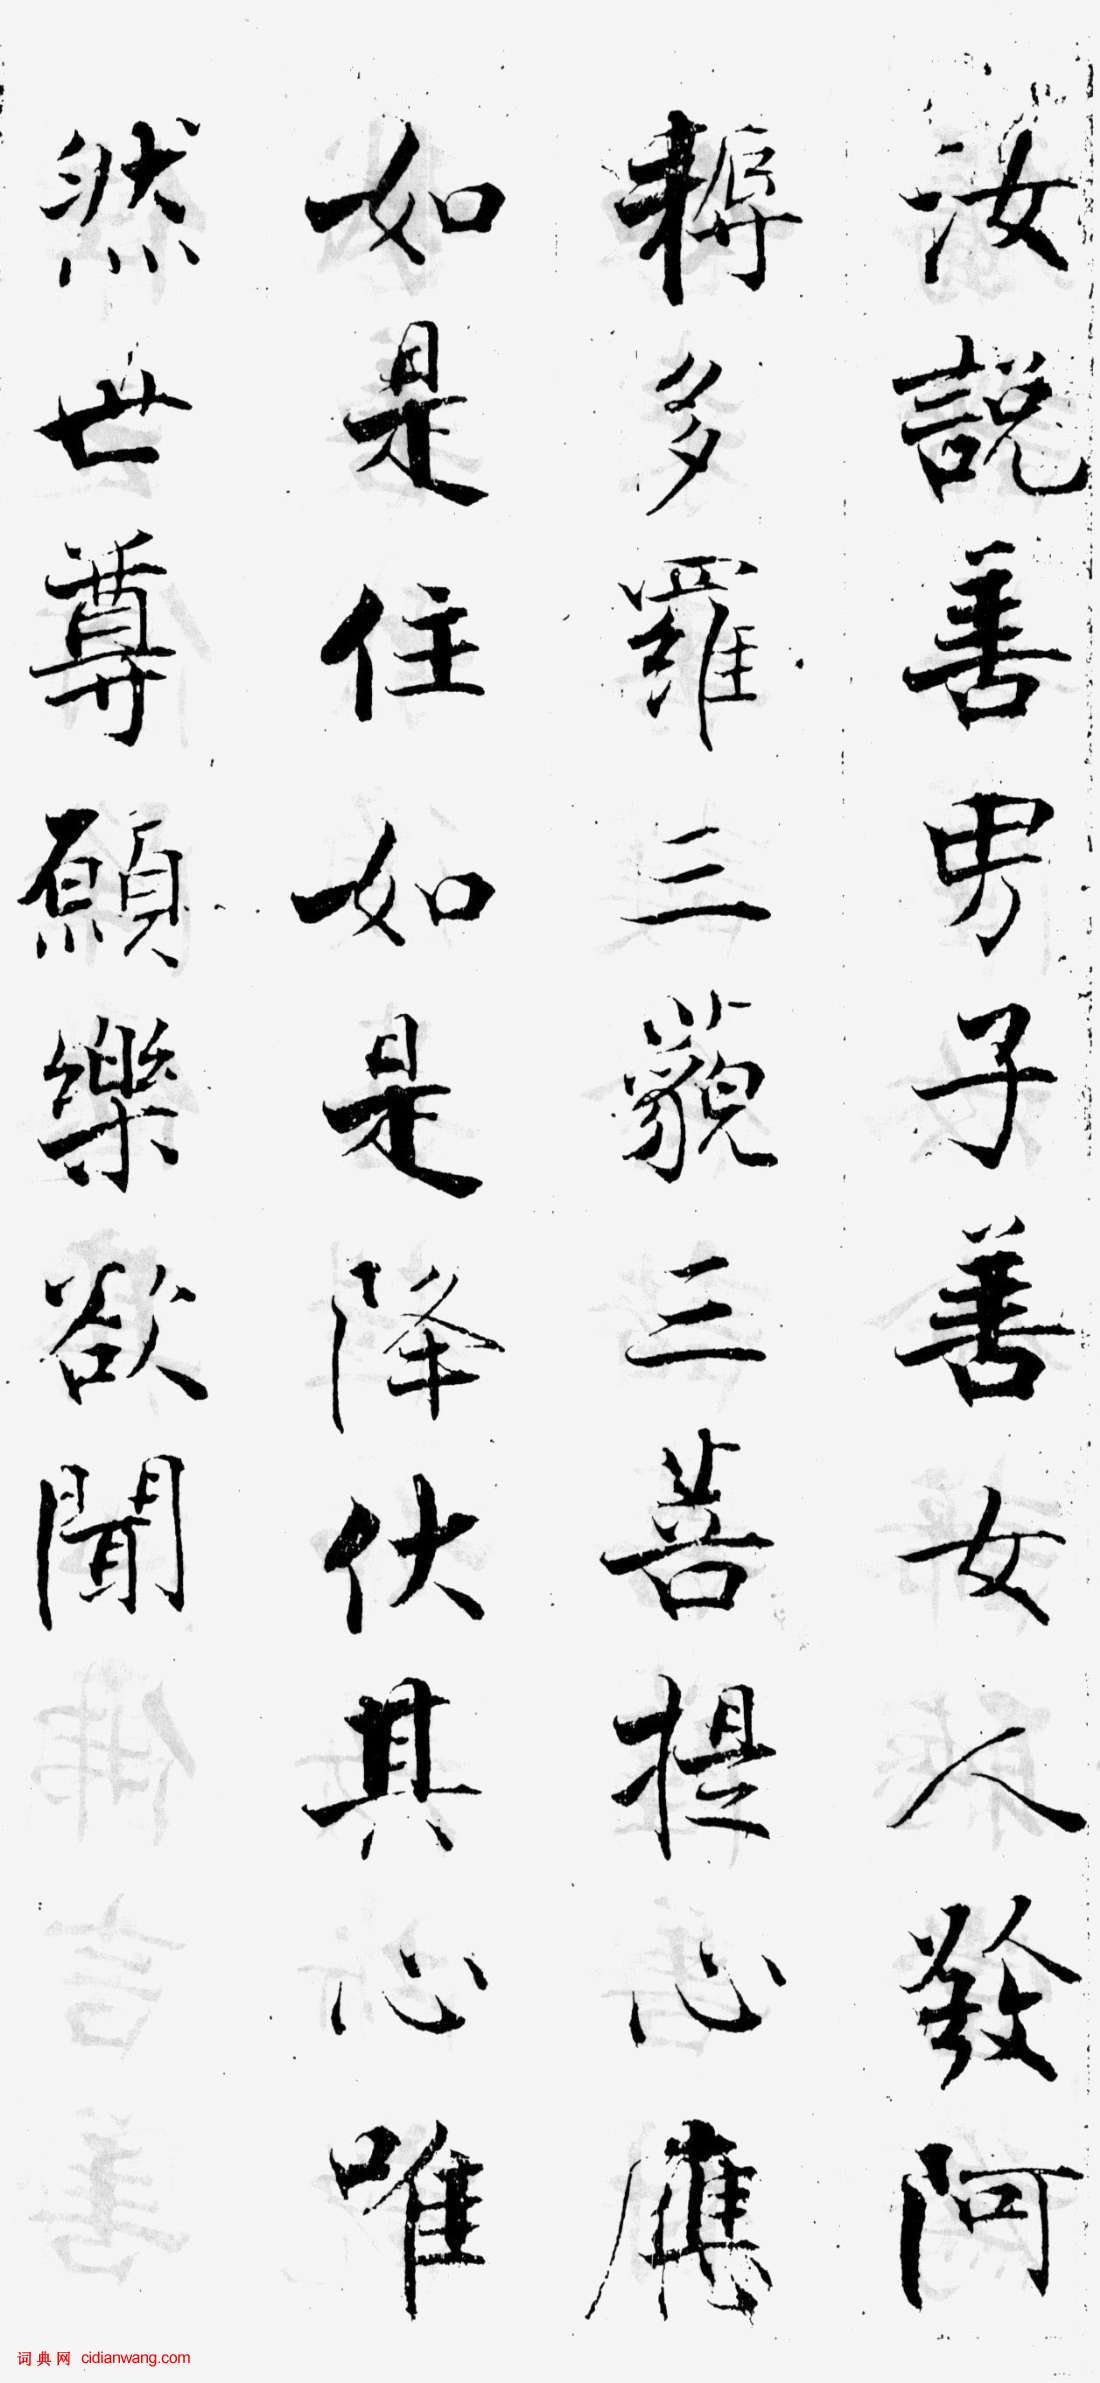 汝說善男子善女人發阿
耨多羅三藐三菩提心應
如是住如是降伏其心唯
然世尊願樂欲聞
词典网 cidianwang.com